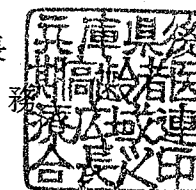 務
兵庫県後
期高齢者医
療広域連
合長之印